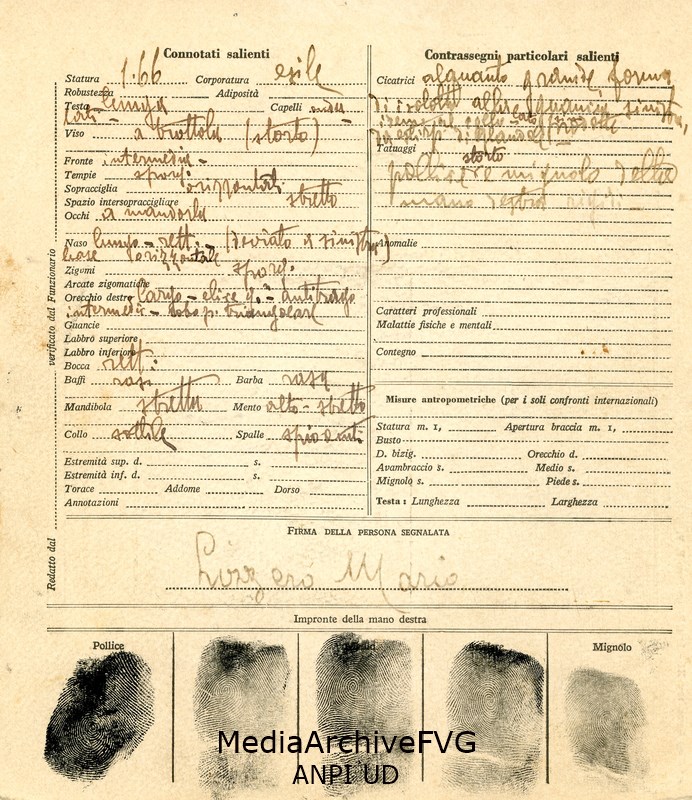 Connotati salienti
Statura 1.66 Corporatura esile
Robustezza Adiposità
Testa lunga Capelli
Viso a trottola (storto)
Fronte intermedia -
Tempie sporg.
Sopracciglia orizzontali
Spazio intersopraccigliare stretto
Occhi a mandorla
Naso lungo - rett. - (deviato a sinistra)
base orizzontale
Zigomi sporg.
Arcate zigomatiche
Orecchio destro largo - elice - antitrago
intermedio - lobo triangolare
Guancie
Labbro superiore
Labbro inferiore
Bocca rett.
Baffi rasi Barba rasa
Mandibola stretta Mento alto - stretto
Collo sottile Spalle spioventi
Estremità sup. d. s.
Estremità inf. d. s.
Torace Addome Dorso
Annotazioni
Contrassegni particolari salienti
Cicatrici alquanto grande, forma
Tatuaggi
storto
pollice e mignolo della
mano destra rigidi
Anomalie
Caratteri professionali
Malattie fisiche e mentali
Contegno
Misure antropometriche (per i soli confronti internazionali)
Statura m. 1, Apertura braccia m. 1,
Busto
D. bizig. Orecchio d.
Avambraccio s. Medio s.
Mignolo s. Piede s.
Testa: Lunghezza Larghezza
Redatto dal verificato dal Funzionario
FIRMA DELLA PERSONA SEGNALATA
Lizzero Mario
Impronte della mano destra
Pollice Mignolo
MediaArchiveFVG
ANPI UD